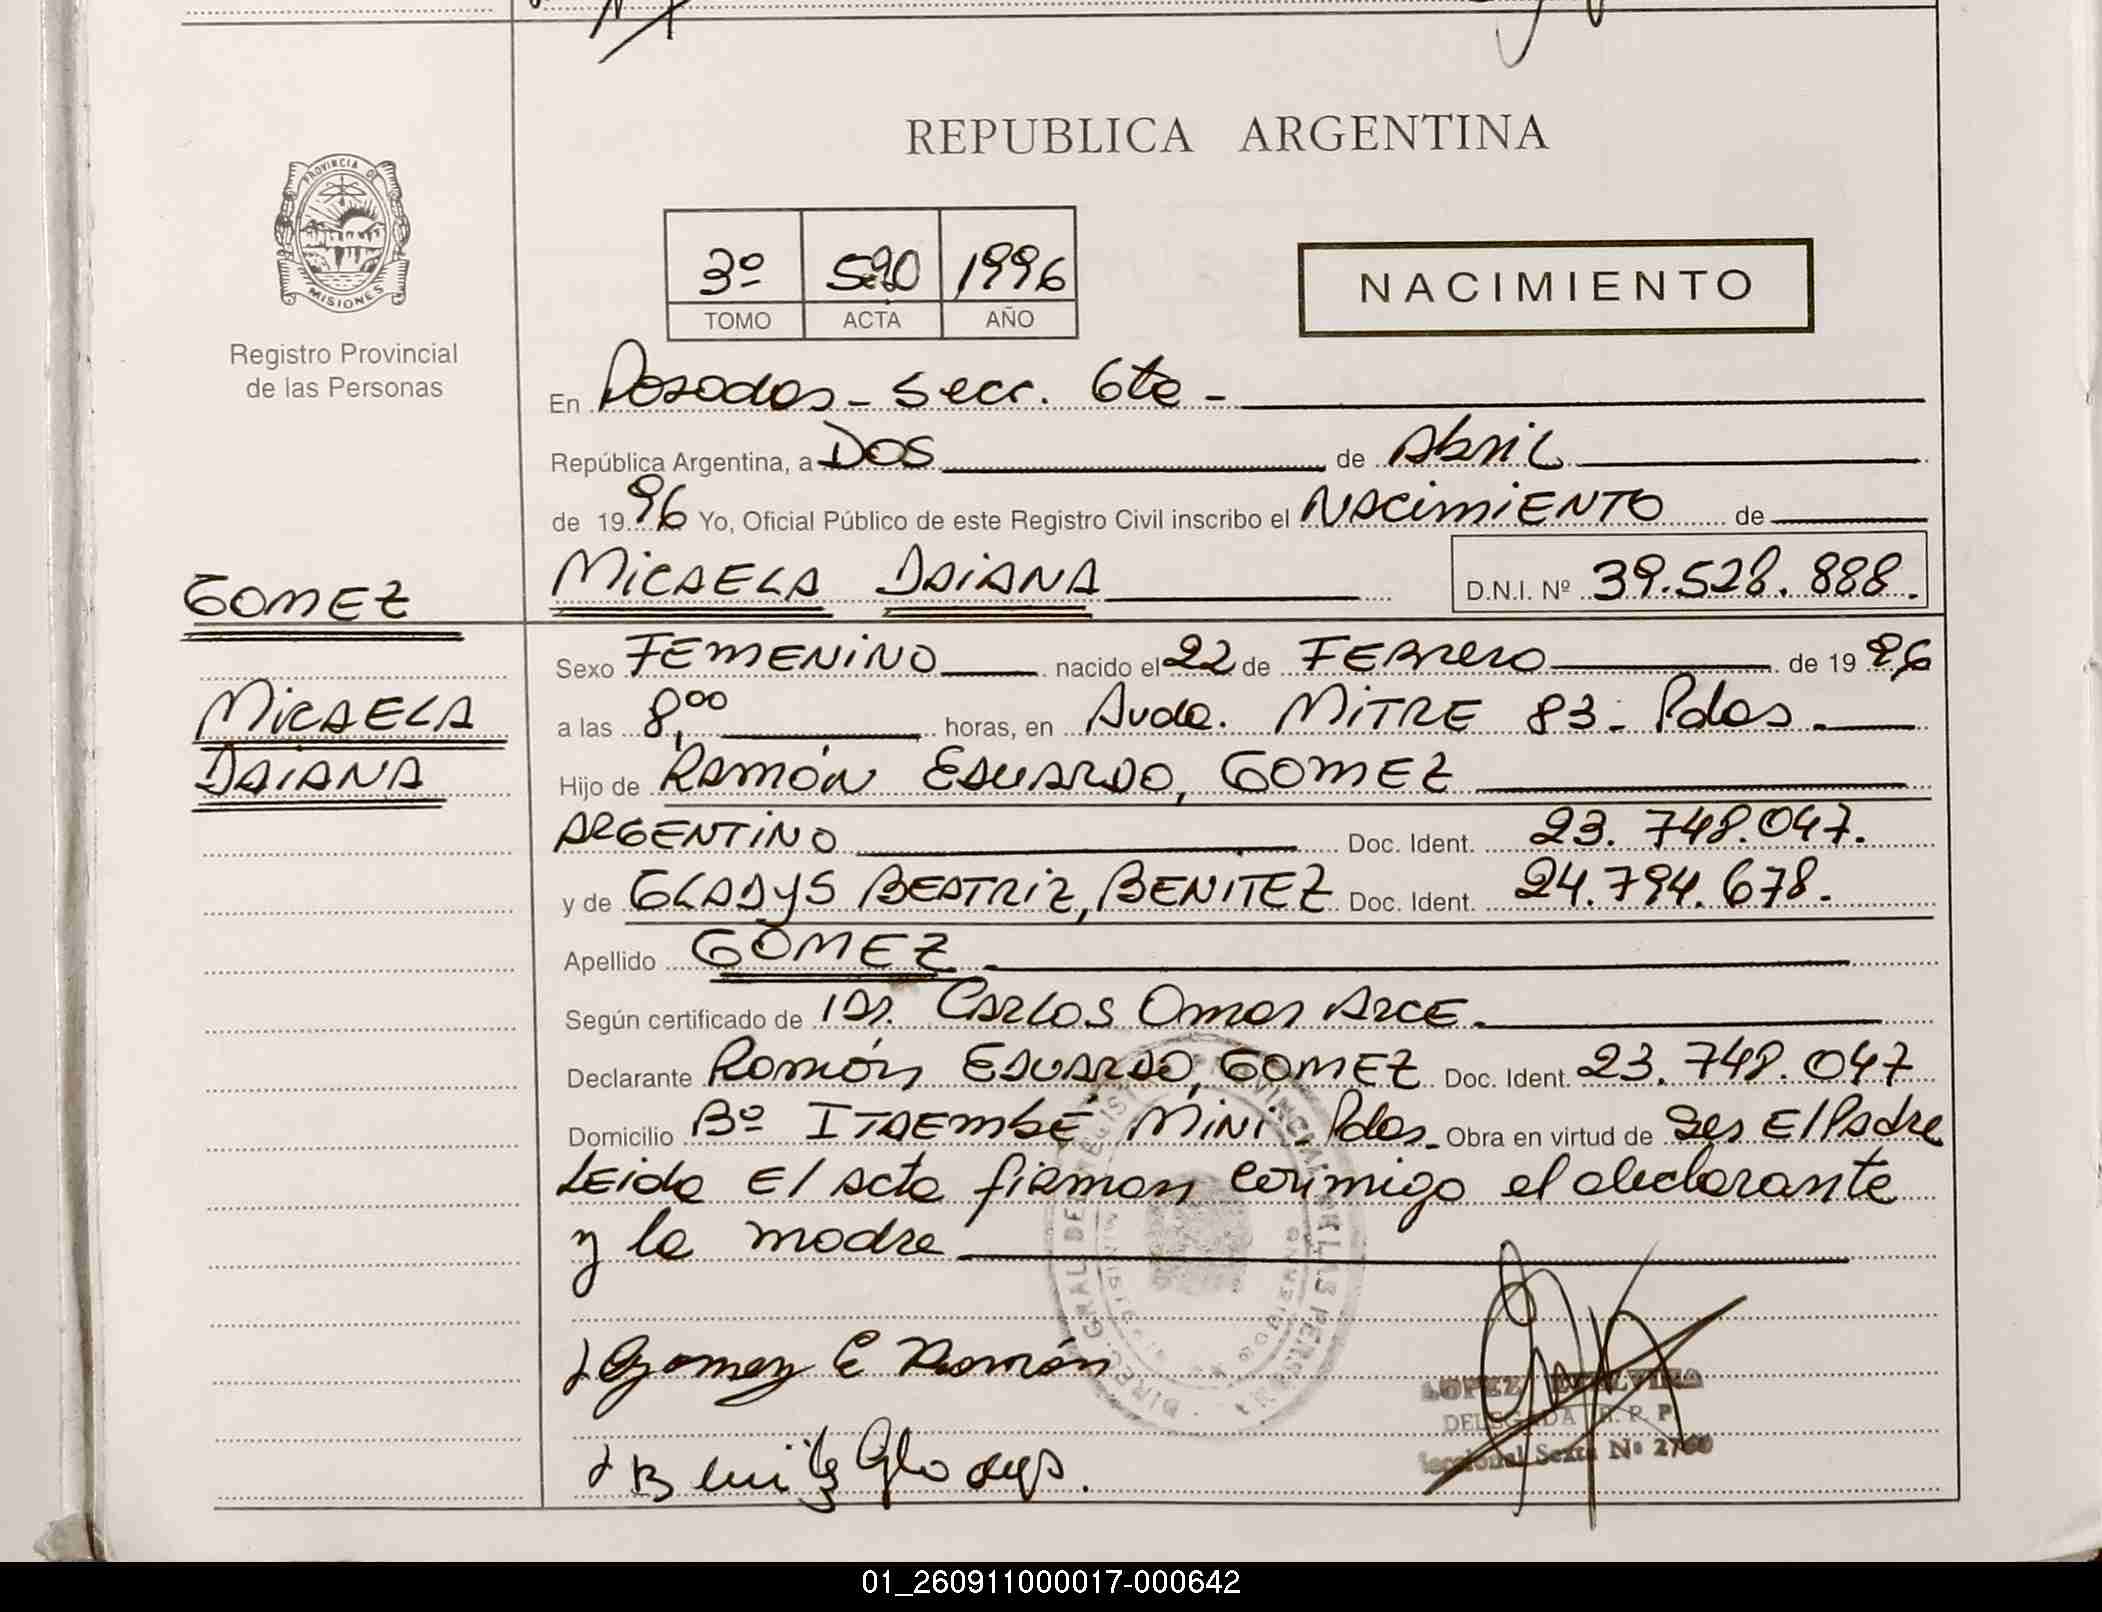 REPUBLICA ARGENTINA
PROVINCIA DE
MISIONES
Registro Provincial
de las Personas
3º 590 1996
TOMO ACTA AÑO
NACIMIENTO
En Posadas - Secc. 6ta -
República Argentina, a DOS de Abril
de 1996 Yo, Oficial Público de este Registro Civil inscribo el NACIMIENTO de
GOMEZ
MICAELA DAIANA D.N.I. Nº 39.528.888.
MICAELA
DAIANA
Sexo FEMENINO nacido el 22 de FEBRERO de 1996
a las 8,00 horas, en Avda. MITRE 83 - Pdas.
Hijo de RAMÓN EDUARDO, GOMEZ
ARGENTINO Doc. Ident. 23.748.047.
y de GLADYS BEATRIZ, BENITEZ Doc. Ident. 24.794.678.
Apellido GOMEZ
Según certificado de Dr. CARLOS Omar ARCE.
Declarante Ramón EDUARDO, GOMEZ Doc. Ident. 23.748.047
Domicilio Bº ITAEMBÉ MINI - Pdas. Obra en virtud de Ser El Padre
Leida El acta firman conmigo el declarante
y la madre
Gomez E Ramón
Benitez Gladys.
LOPEZ
DELEGADA R. P. P.
Seccional Sexta Nº 2760
01_260911000017-000642